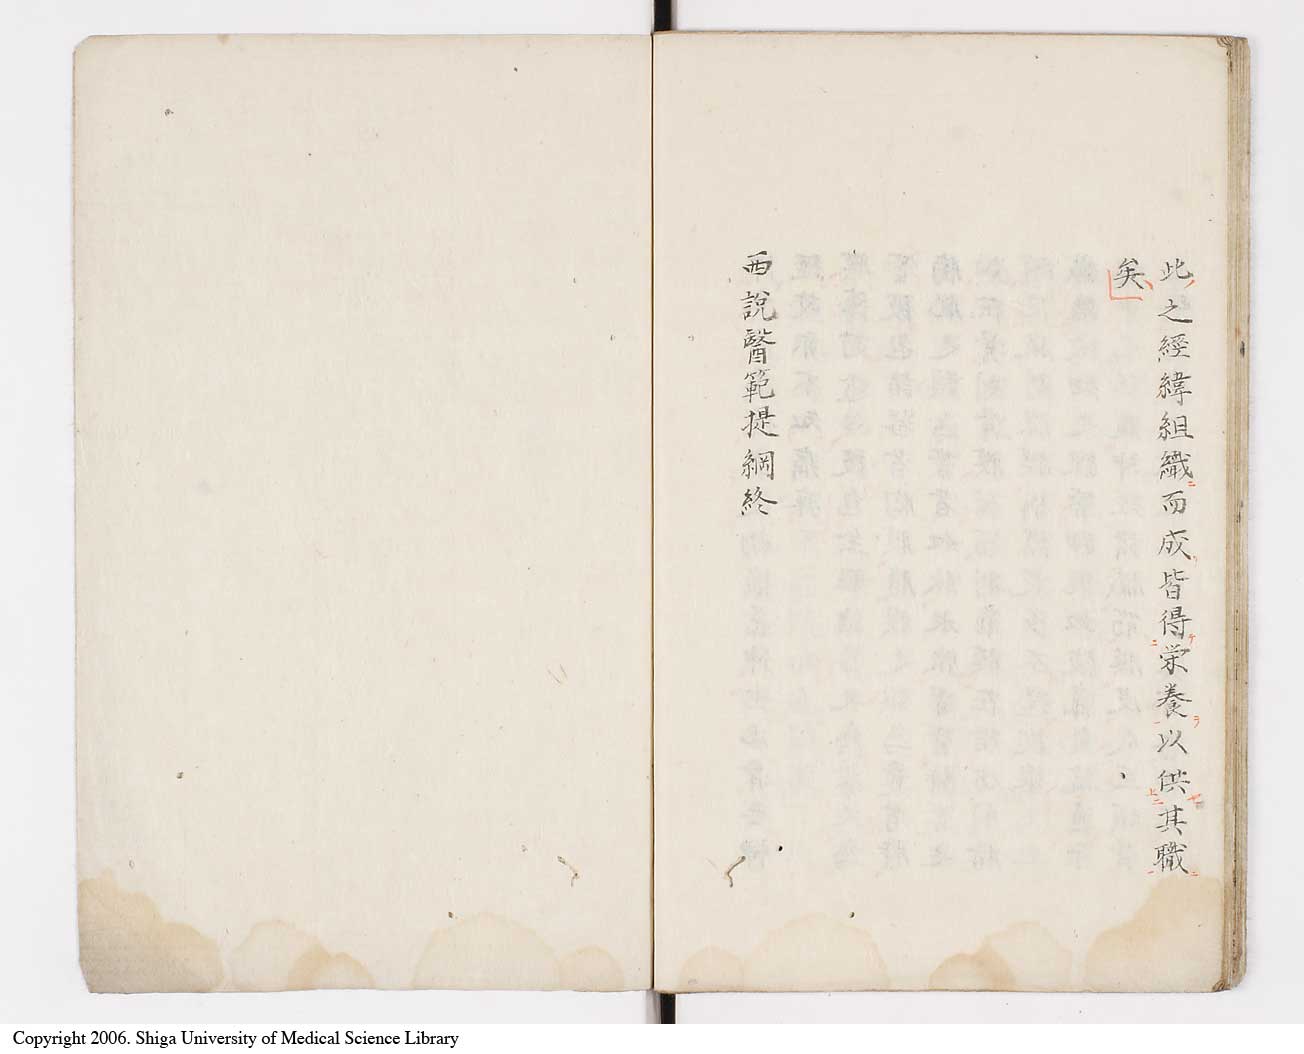 此之經緯組織而成皆得栄養以供其職
矣
西說醫範提綱終
Copyright 2006. Shiga University of Medical Science Library